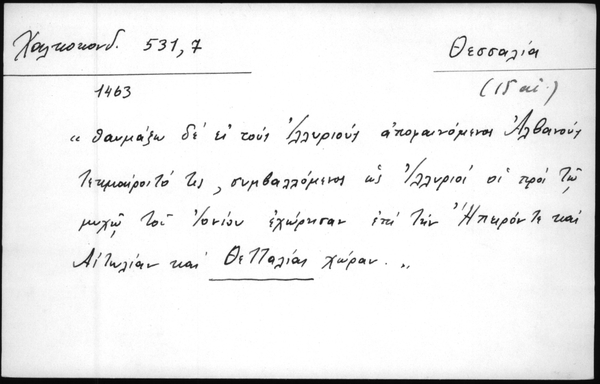 Χαλκοκονδ. 531,7
Θεσσαλία
1463
(15 αἰ.)
" θαυμάζω δέ εἰ τούς Ἰλλυριούς ἀποφαινόμενος Ἀλβανούς
τεκμαίροιτό τις, συμβαλλόμενος ὡς Ἰλλυριοί οἱ πρός τῷ
μυχῷ τοῦ Ἰονίου ἐχώρησαν ἐπί τήν Ἤπειρόν τε καί
Αἰτωλίαν καί Θετταλίας χώραν. "